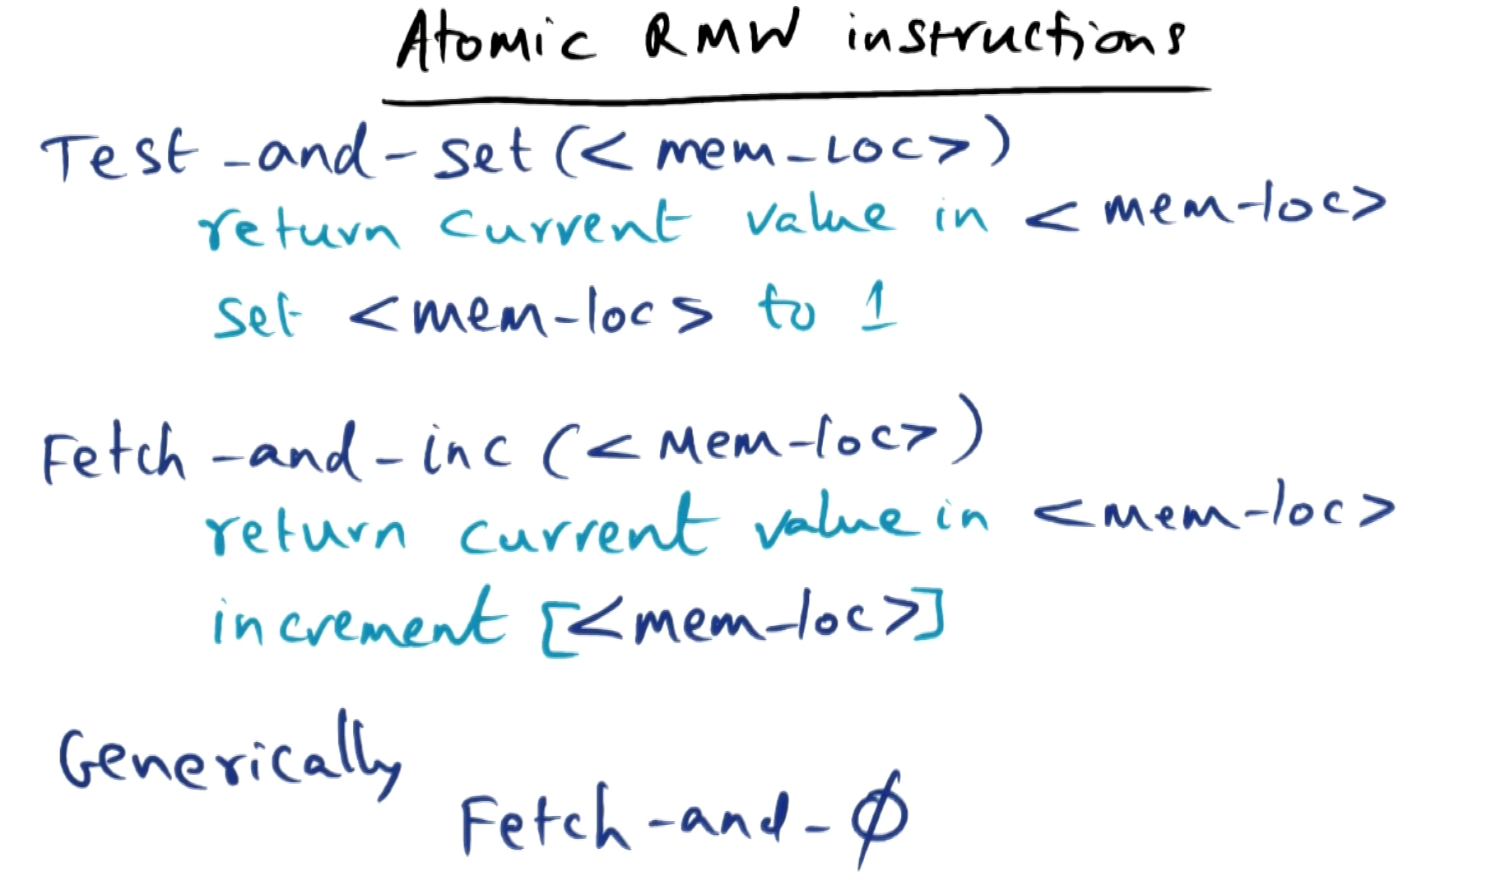 Atomic RMW instructions
Test-and-set (<mem-loc>)
return current value in <mem-loc>
set <mem-loc> to 1
Fetch-and-inc (<mem-loc>)
return current value in <mem-loc>
increment [<mem-loc>]
Generically
Fetch-and-ϕ